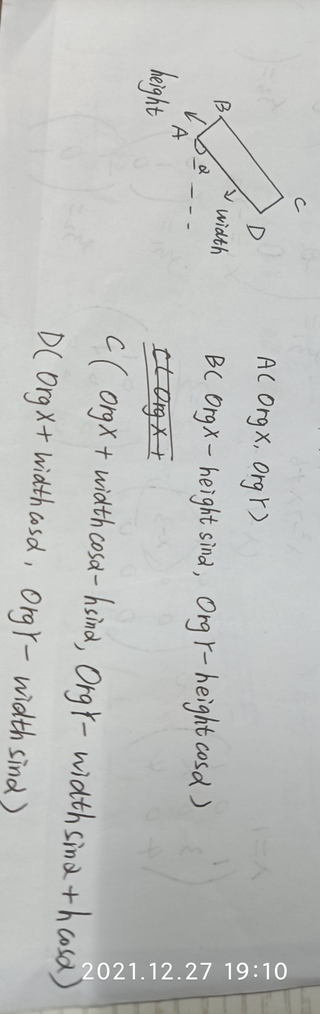 B
C
height
A
α
width
D
A( OrgX, OrgY)
B( OrgX - height sinα, OrgY - height cosα )
C( OrgX +
C( OrgX + width cosα - h sinα, OrgY - width sinα + h cosα)
D( OrgX + width cosα, OrgY - width sinα )
2021.12.27 19:10